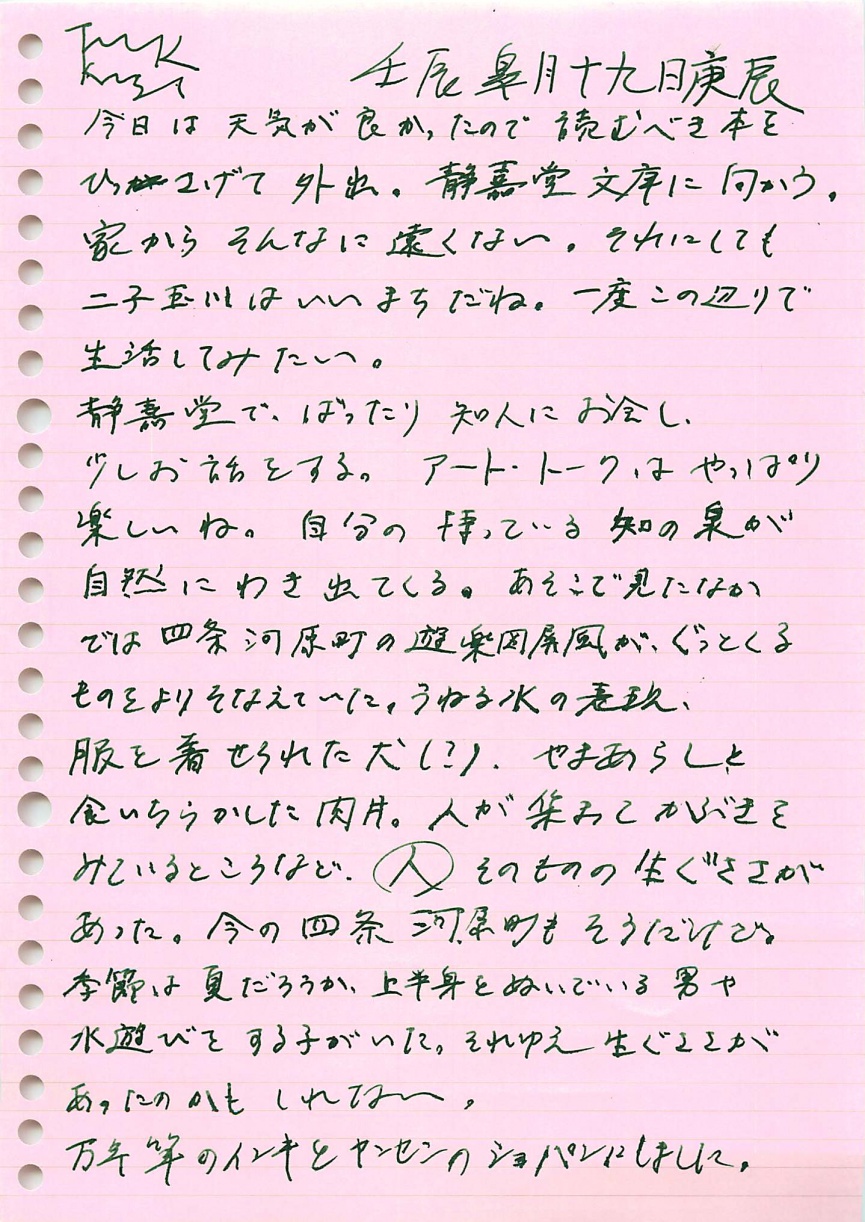 壬辰 皐月十九日庚辰
今日は天気が良かったので読むべき本を
ひっさげて外出。静嘉堂文庫に向かう。
家からそんなに遠くない。それにしても
二子玉川はいいまちだね。一度この辺りで
生活してみたい。
静嘉堂で、ばったり知人にお会し、
少しお話をする。アート・トークはやっぱり
楽しいね。自分の持っている知の泉が
自然にわき出てくる。あそこで見たなか
では四条河原町の遊楽図屏風が、ぐっとくる
ものをよりそなえていた。うねる水の表現、
服を着せられた犬(?)、やまあらしと
食いちらかした肉片。人が集まってかぶきを
みているところなど、人そのものの生ぐささが
あった。今の四条河原町もそうだけど。
季節は夏だろうか、上半身をぬいでいる男や
水遊びをする子がいた。それゆえ生ぐささが
あったのかもしれない。
万年筆のインキをヤンセンのショパンにしました。